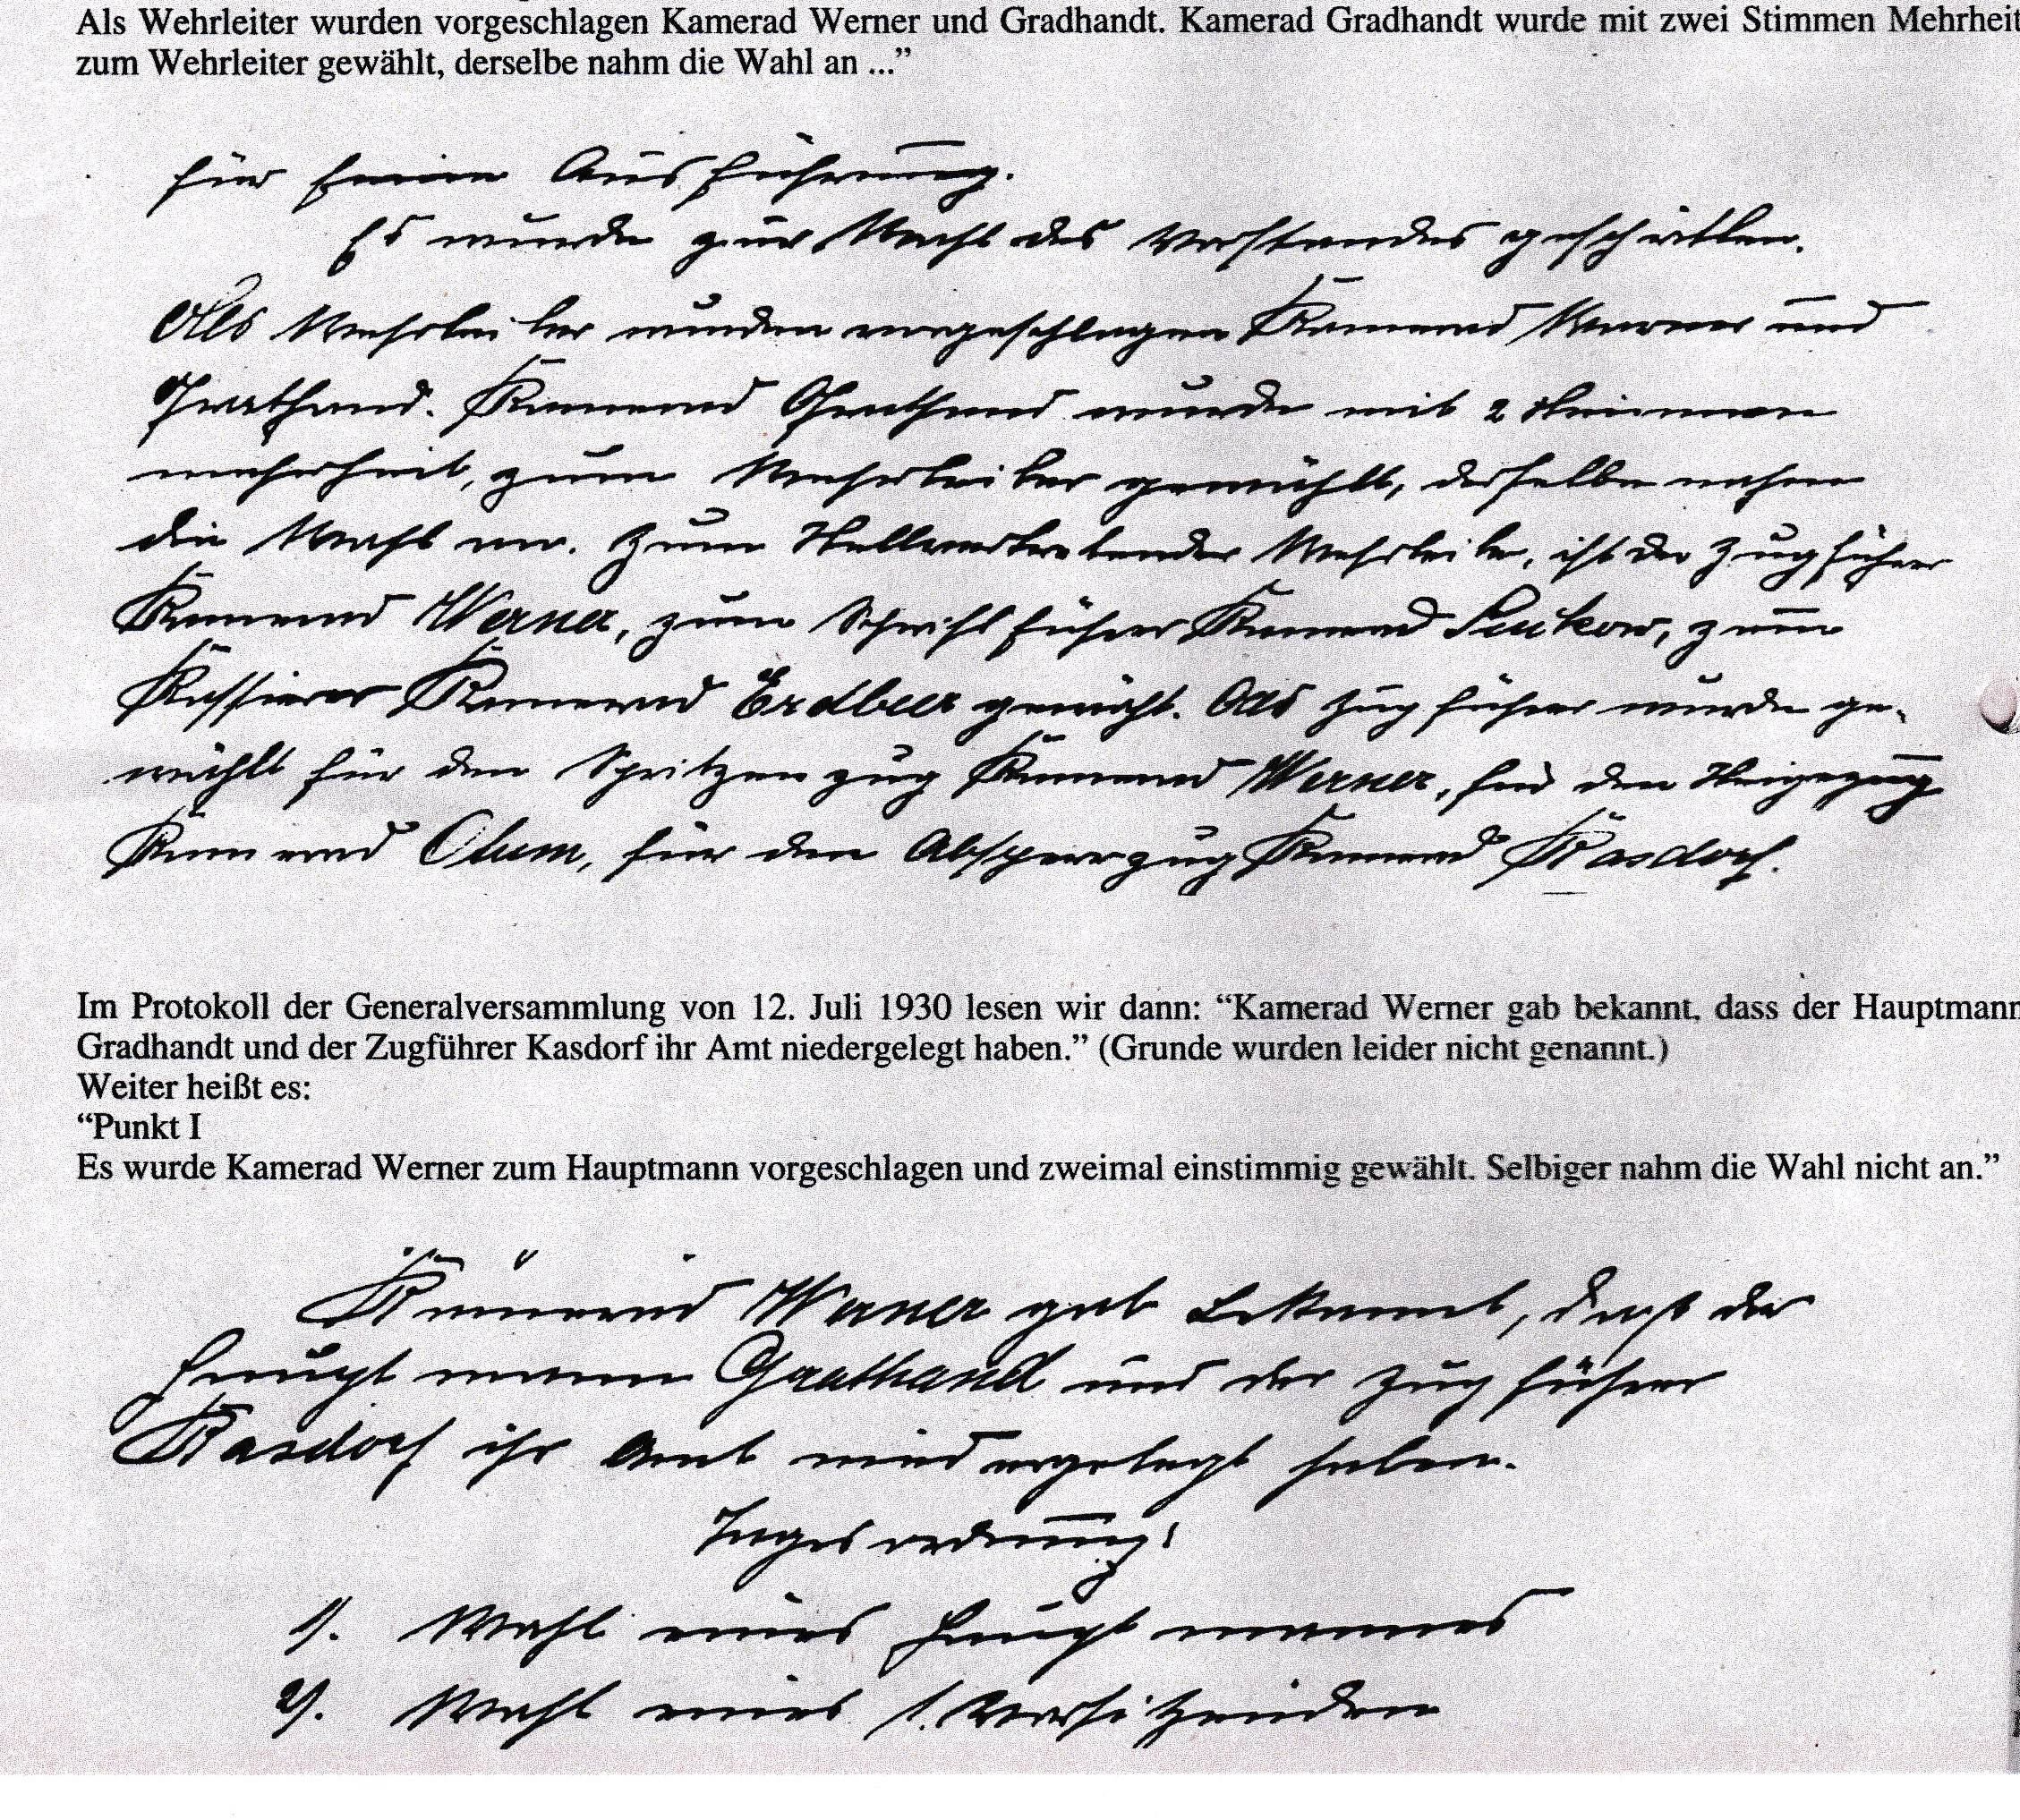 Als Wehrleiter wurden vorgeschlagen Kamerad Werner und Gradhandt. Kamerad Gradhandt wurde mit zwei Stimmen Mehrheit
zum Wehrleiter gewählt, derselbe nahm die Wahl an ...”
für seine Ausführung.
Es wurde zur Wahl des Vorstandes geschritten.
Als Wehrleiter wurden vorgeschlagen Kamerad Werner und
Grathand. Kamerad Grathand wurde mit 2 Stimmen
mehrheit, zum Wehrleiter gewählt, derselbe nahm
die Wahl an. Zum Stellvertretender Wehrleiter, ist der Zugführer
Kamerad Werner, zum Schriftführer Kamerad zum
Kassierer Kamerad Erdbeer gewählt. Als Zugführer wurde ge-
wählt für den Spritzenzug Kamerad Werner, für den Steigezug
Kamerad Olum, für den Absperrzug Kamerad Kasdorf.
Im Protokoll der Generalversammlung von 12. Juli 1930 lesen wir dann: “Kamerad Werner gab bekannt, dass der Hauptmann
Gradhandt und der Zugführer Kasdorf ihr Amt niedergelegt haben.” (Grunde wurden leider nicht genannt.)
Weiter heißt es:
“Punkt I
Es wurde Kamerad Werner zum Hauptmann vorgeschlagen und zweimal einstimmig gewählt. Selbiger nahm die Wahl nicht an.”
Kamerad Werner gab bekannt, daß der
Hauptmann Grathand und der Zugführer
Kasdorf ihr Amt niedergelegt haben.
Tagesordnung:
1). Wahl eines Hauptmannes
2). Wahl eines 1. Vorsitzenden